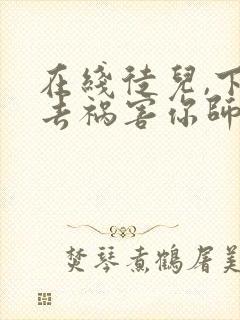 在线徒儿,下
去祸害你师
焚琴煮鹤屠美